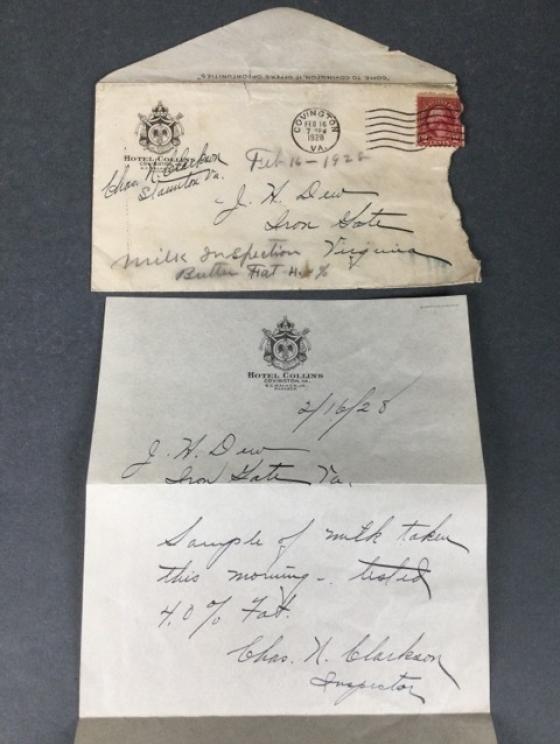 "COME TO COVINGTON, IT OFFERS OPPORTUNITIES"
HOTEL COLLINS
COVINGTON, VA.
Chas. N. Clarkson
Staunton Va.
COVINGTON
FEB 16
7 PM
1928
VA.
Feb 16 - 1928
J. H. Dew
Iron Gate
Virginia
Milk Inspection
Butter Fat 4. %
HOTEL COLLINS
COVINGTON, VA.
2/16/28
J. H. Dew
Iron Gate Va.
Sample of milk taken
this morning - tested
4.0% Fat.
Chas. N. Clarkson
Inspector